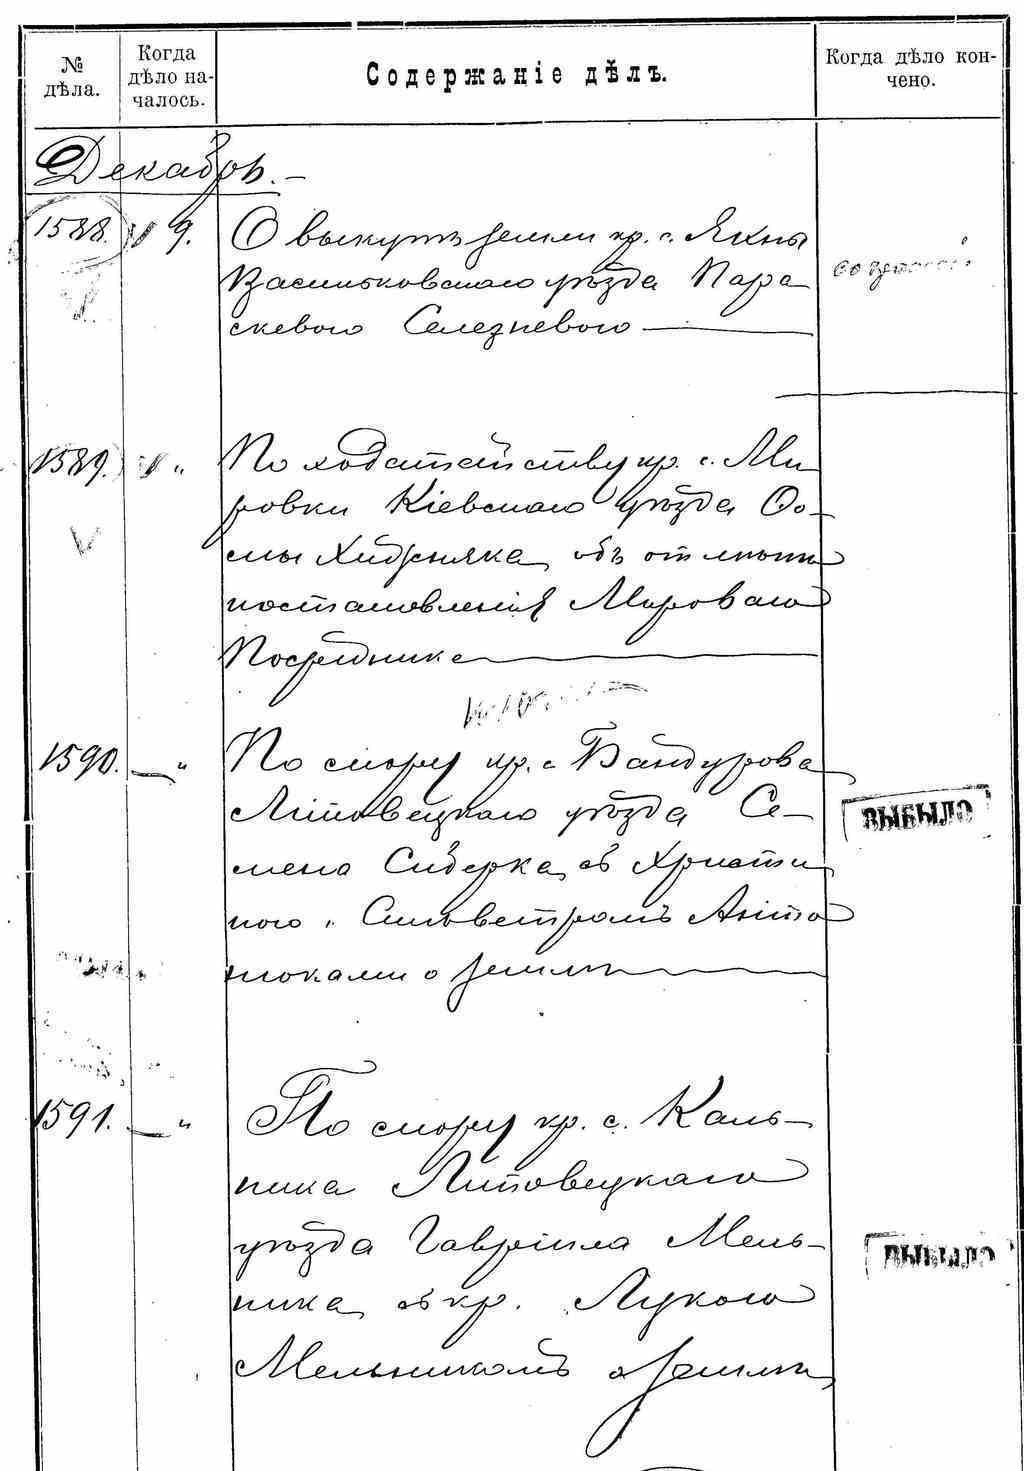 № дѣла.
Когда дѣло на-
чалось.
Содержаніе дѣлъ.
Когда дѣло кон-
чено.
Декабрь.
1588. 9. О выкупѣ земли кр. с. Якны
Васильковскаго уѣзда Пара-
скевою Селезневою
1589. " По ходатайству кр. с. Ми-
ровки Кіевскаго уѣзда Ѳо-
мы объ отмѣнѣ
постановленія Мироваго
Посредника
1590. — " По спору кр. с. Бандурова
Липовецкаго уѣзда Се-
мена Сидерка съ Христи-
ною и Сильвестромъ Анто-
нюками о землѣ
ВЫБЫЛО
1591. — " По спору кр. с. Каль-
ника Липовецкаго
уѣзда Гавріила Мель-
ника съ кр. Лукою
Мельникомъ о землѣ
ВЫБЫЛО